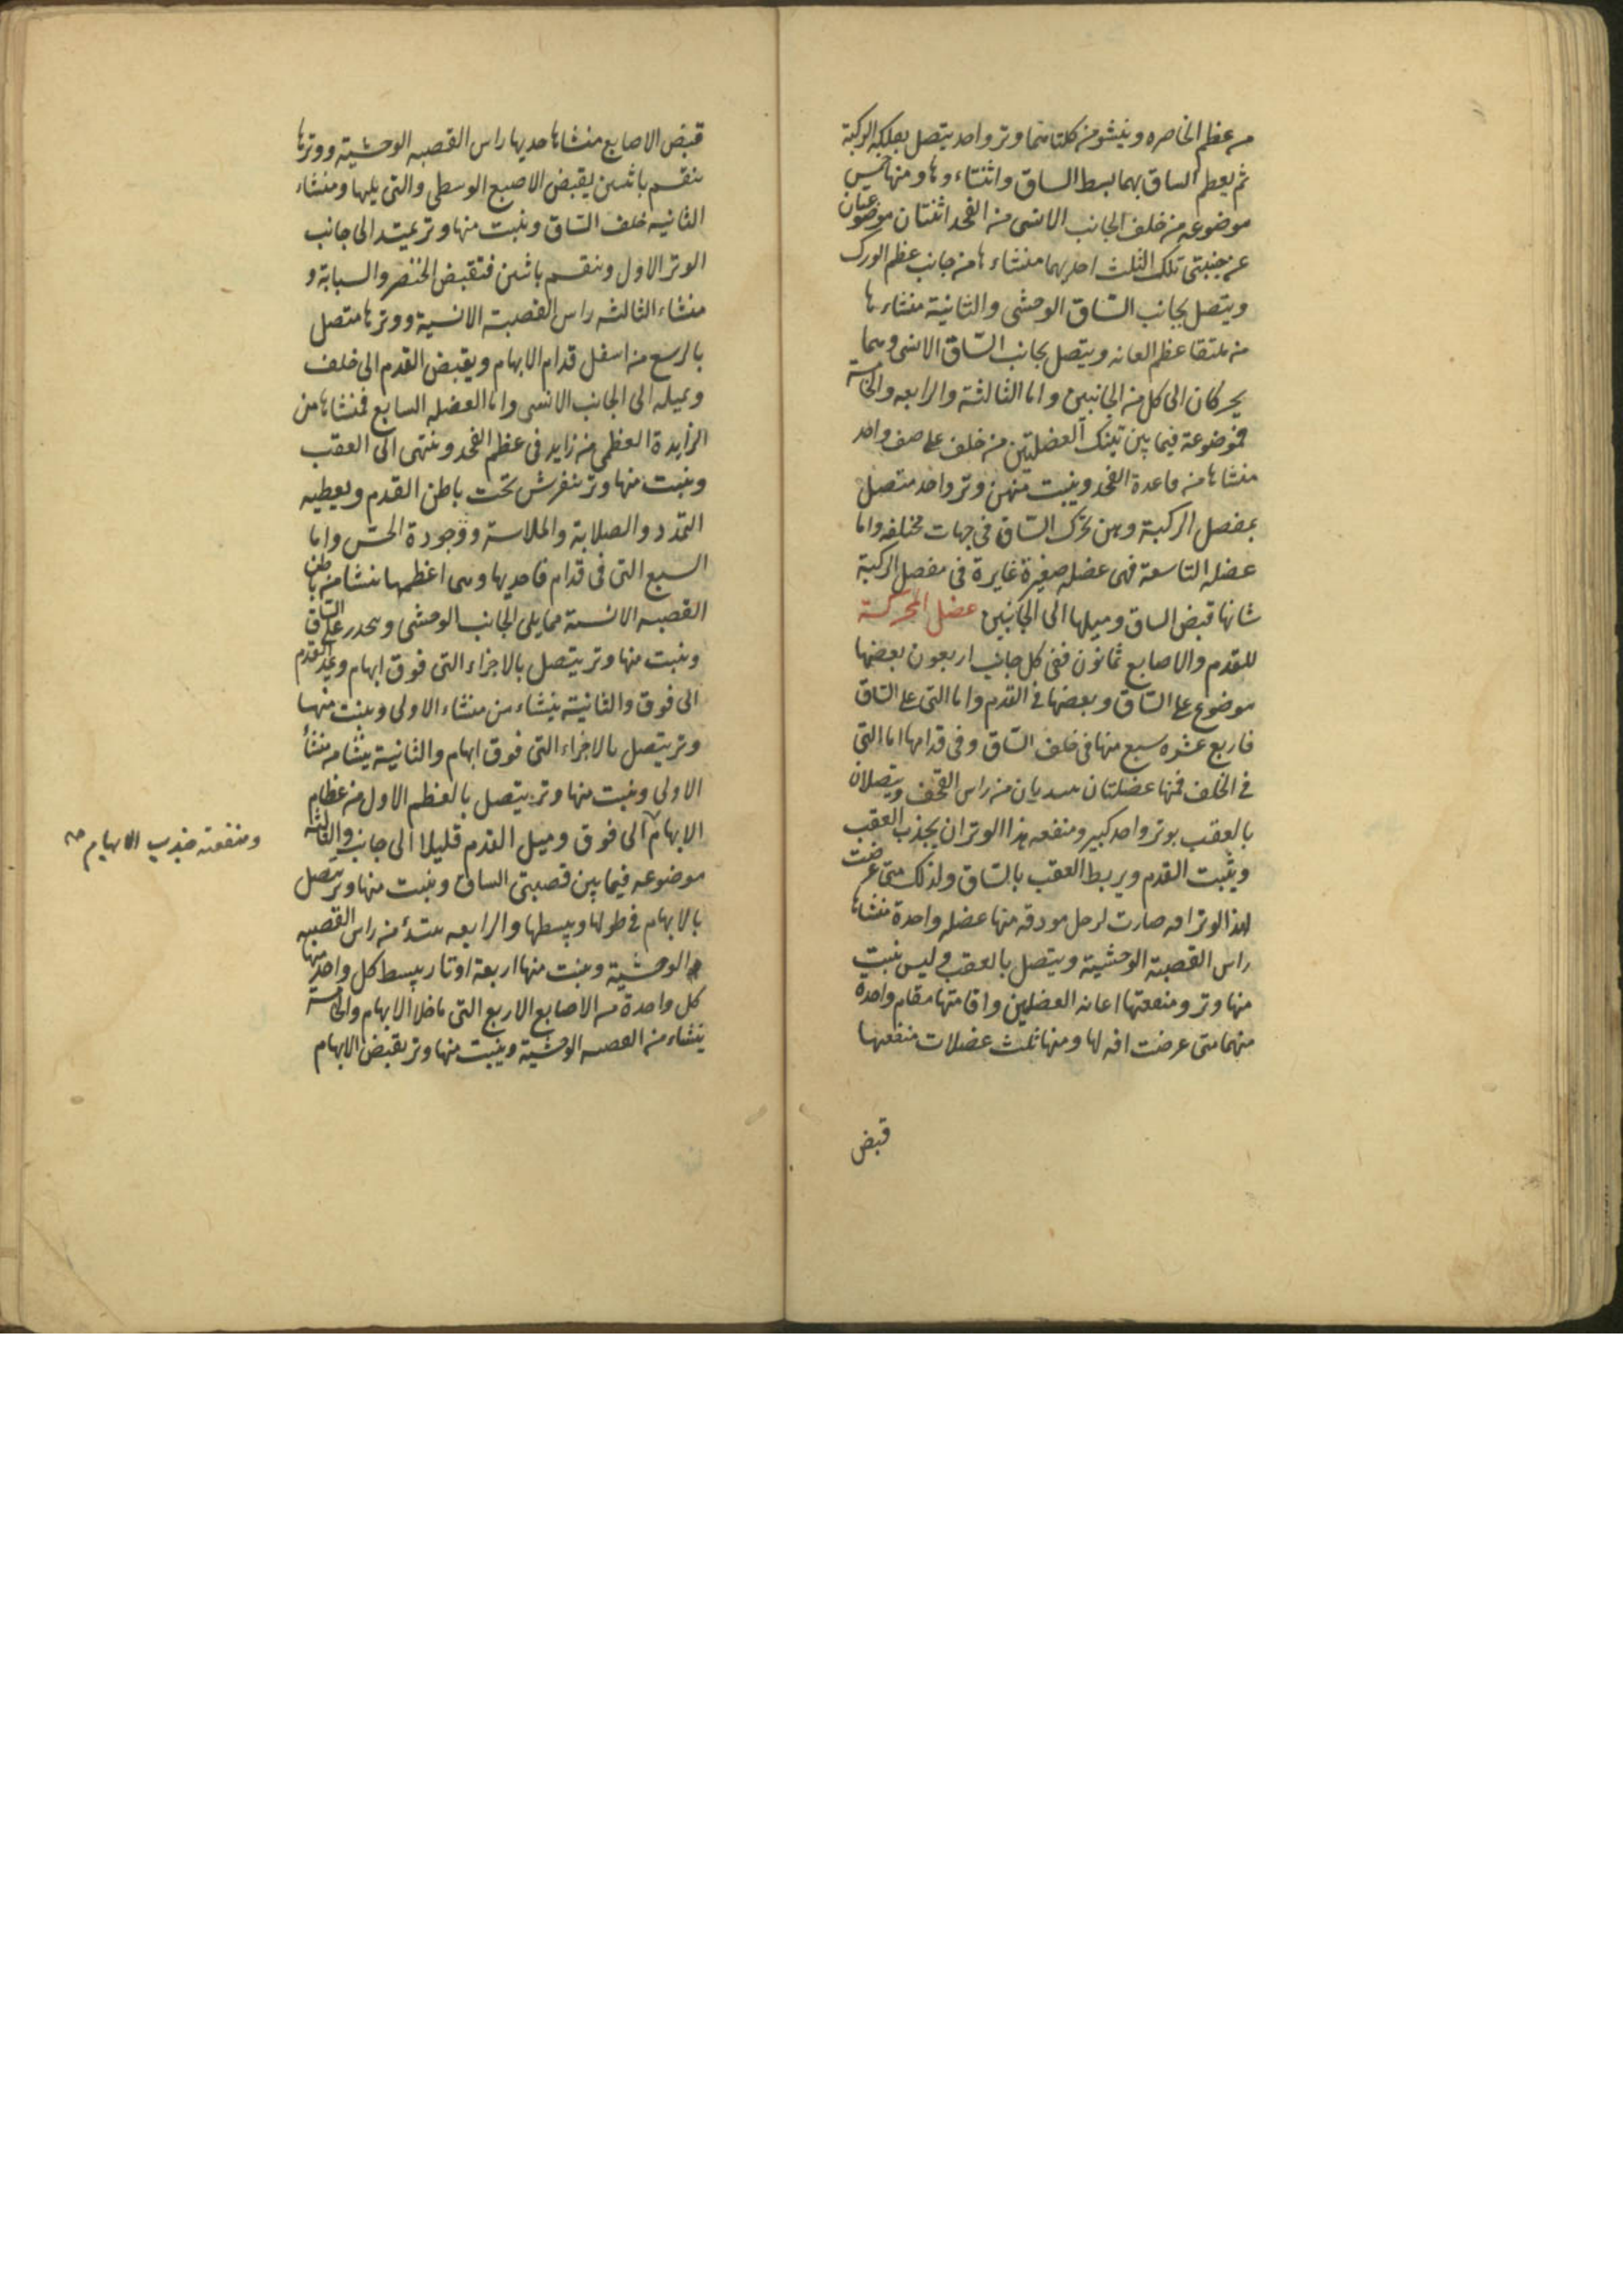 من عظم الخاصره وينشو من كلتاهما وتر واحد يتصل بفلكه الركبة
ثم يعظم الساق بهما يبسط الساق وانثناء وها ومنها خمس
موضوعه من خلف الجانب الانسى من الفخد اثنتان موضوعتان
عن جنبتى تلك الثلث احديهما منشاءها من جانب عظم الورك
ويتصل بجانب الساق الوحشى والثانية منشاءها
من ملتقا عظم العانه ويتصل بجانب الساق الانسى وهما
يحركان الى كل من الجانبين واما الثالثة والرابعه والخامسة
فموضوعة فيما بين تينك العضلتين من خلف على صف واحد
منشاها من قاعدة الفخد وينبت منهن وتر واحد متصل
بمفصل الركبة وبهن تحرك الساق فى جهات مختلفه واما
عضله التاسعة فهى عضله صغيرة غايرة فى مفصل الركبة
شانها قبض الساق وميلها الى الجانبين عضل المحركة
للقدم والاصابع ثمانون ففى كل جانب اربعون بعضها
موضوع على الساق وبعضها فى القدم واما التى على الساق
فاربع عشره سبع منها فى خلف الساق وفى قدامها اما التى
فى الخلف فمنها عضلتان من راس القحف ويتصلان
بالعقب بوتر واحد كبير ومنفعه هذا الوتر ان يجذب العقب
ويثبت القدم ويربط العقب بالساق ولذلك متى عرضت
لهذا الوتر افه صارت لرجل منها عضله واحدة منشاها
راس القصبة الوحشية ويتصل بالعقب وليس ينبت
منها وتر ومنفعتها اعانه العضلين واقامتها مقام واحدة
منهما متى عرضت افه لها ومنها ثلث عضلات منفعتها
قبض
قبض الاصابع منشاها احديها راس القصبه الوحشية ووترها
ينقسم باثنين يقبض الاصبع الوسطى والتى يليها ومنشاء
الثانيه خلف الساق وينبت منها وتر يمتد الى جانب
الوتر الاول وينقسم باثنين فتقبض الخنصر والسبابة و
منشاء الثالثه راس القصبة الانسية ووترها متصل
بالرسغ من اسفل قدام الابهام ويقبض القدم الى خلف
ويميله الى الجانب الانسى واما العضله السابع فمنشاها من
الزايدة العظمى من زايد فى عظم الفخد وينتهى الى العقب
وينبت منها وتر ينفرش تحت باطن القدم ويعطيه
التمدد والصلابة والملاسة ووجودة الحس واما
السبع التى فى قدام فاحديها وهى اعظمها ينشا من باطن
القصبه الانسية مما يلى الجانب الوحشى وينحدر على الساق
وينبت منها وتر يتصل بالاجزاء التى فوق ابهام القدم
الى فوق والثانية ينشاء من منشاء الاولى وينبت منها
وتر يتصل بالاجزاء التى فوق ابهام والثانية ينشا من منشأ
الاولى وينبت منها وتر يتصل بالعظم الاول من عظام
الابهام الى فوق وميل القدم قليلا الى جانب والثالثه
ومنفعته جذب الابهام
موضوعه فيما بين قصبتى الساق وينبت منها وتر يتصل
بالابهام فى طولها ويبسطها والرابعه يبتدئ من راس القصبه
الوحشية وينبت منها اربعة اوتار يبسط كل واحد منها
كل واحدة من الاصابع الاربع التى ماخلا الابهام والخامسة
ينشاء من القصبه الوحشية وينبت منها وتر يقبض الابهام